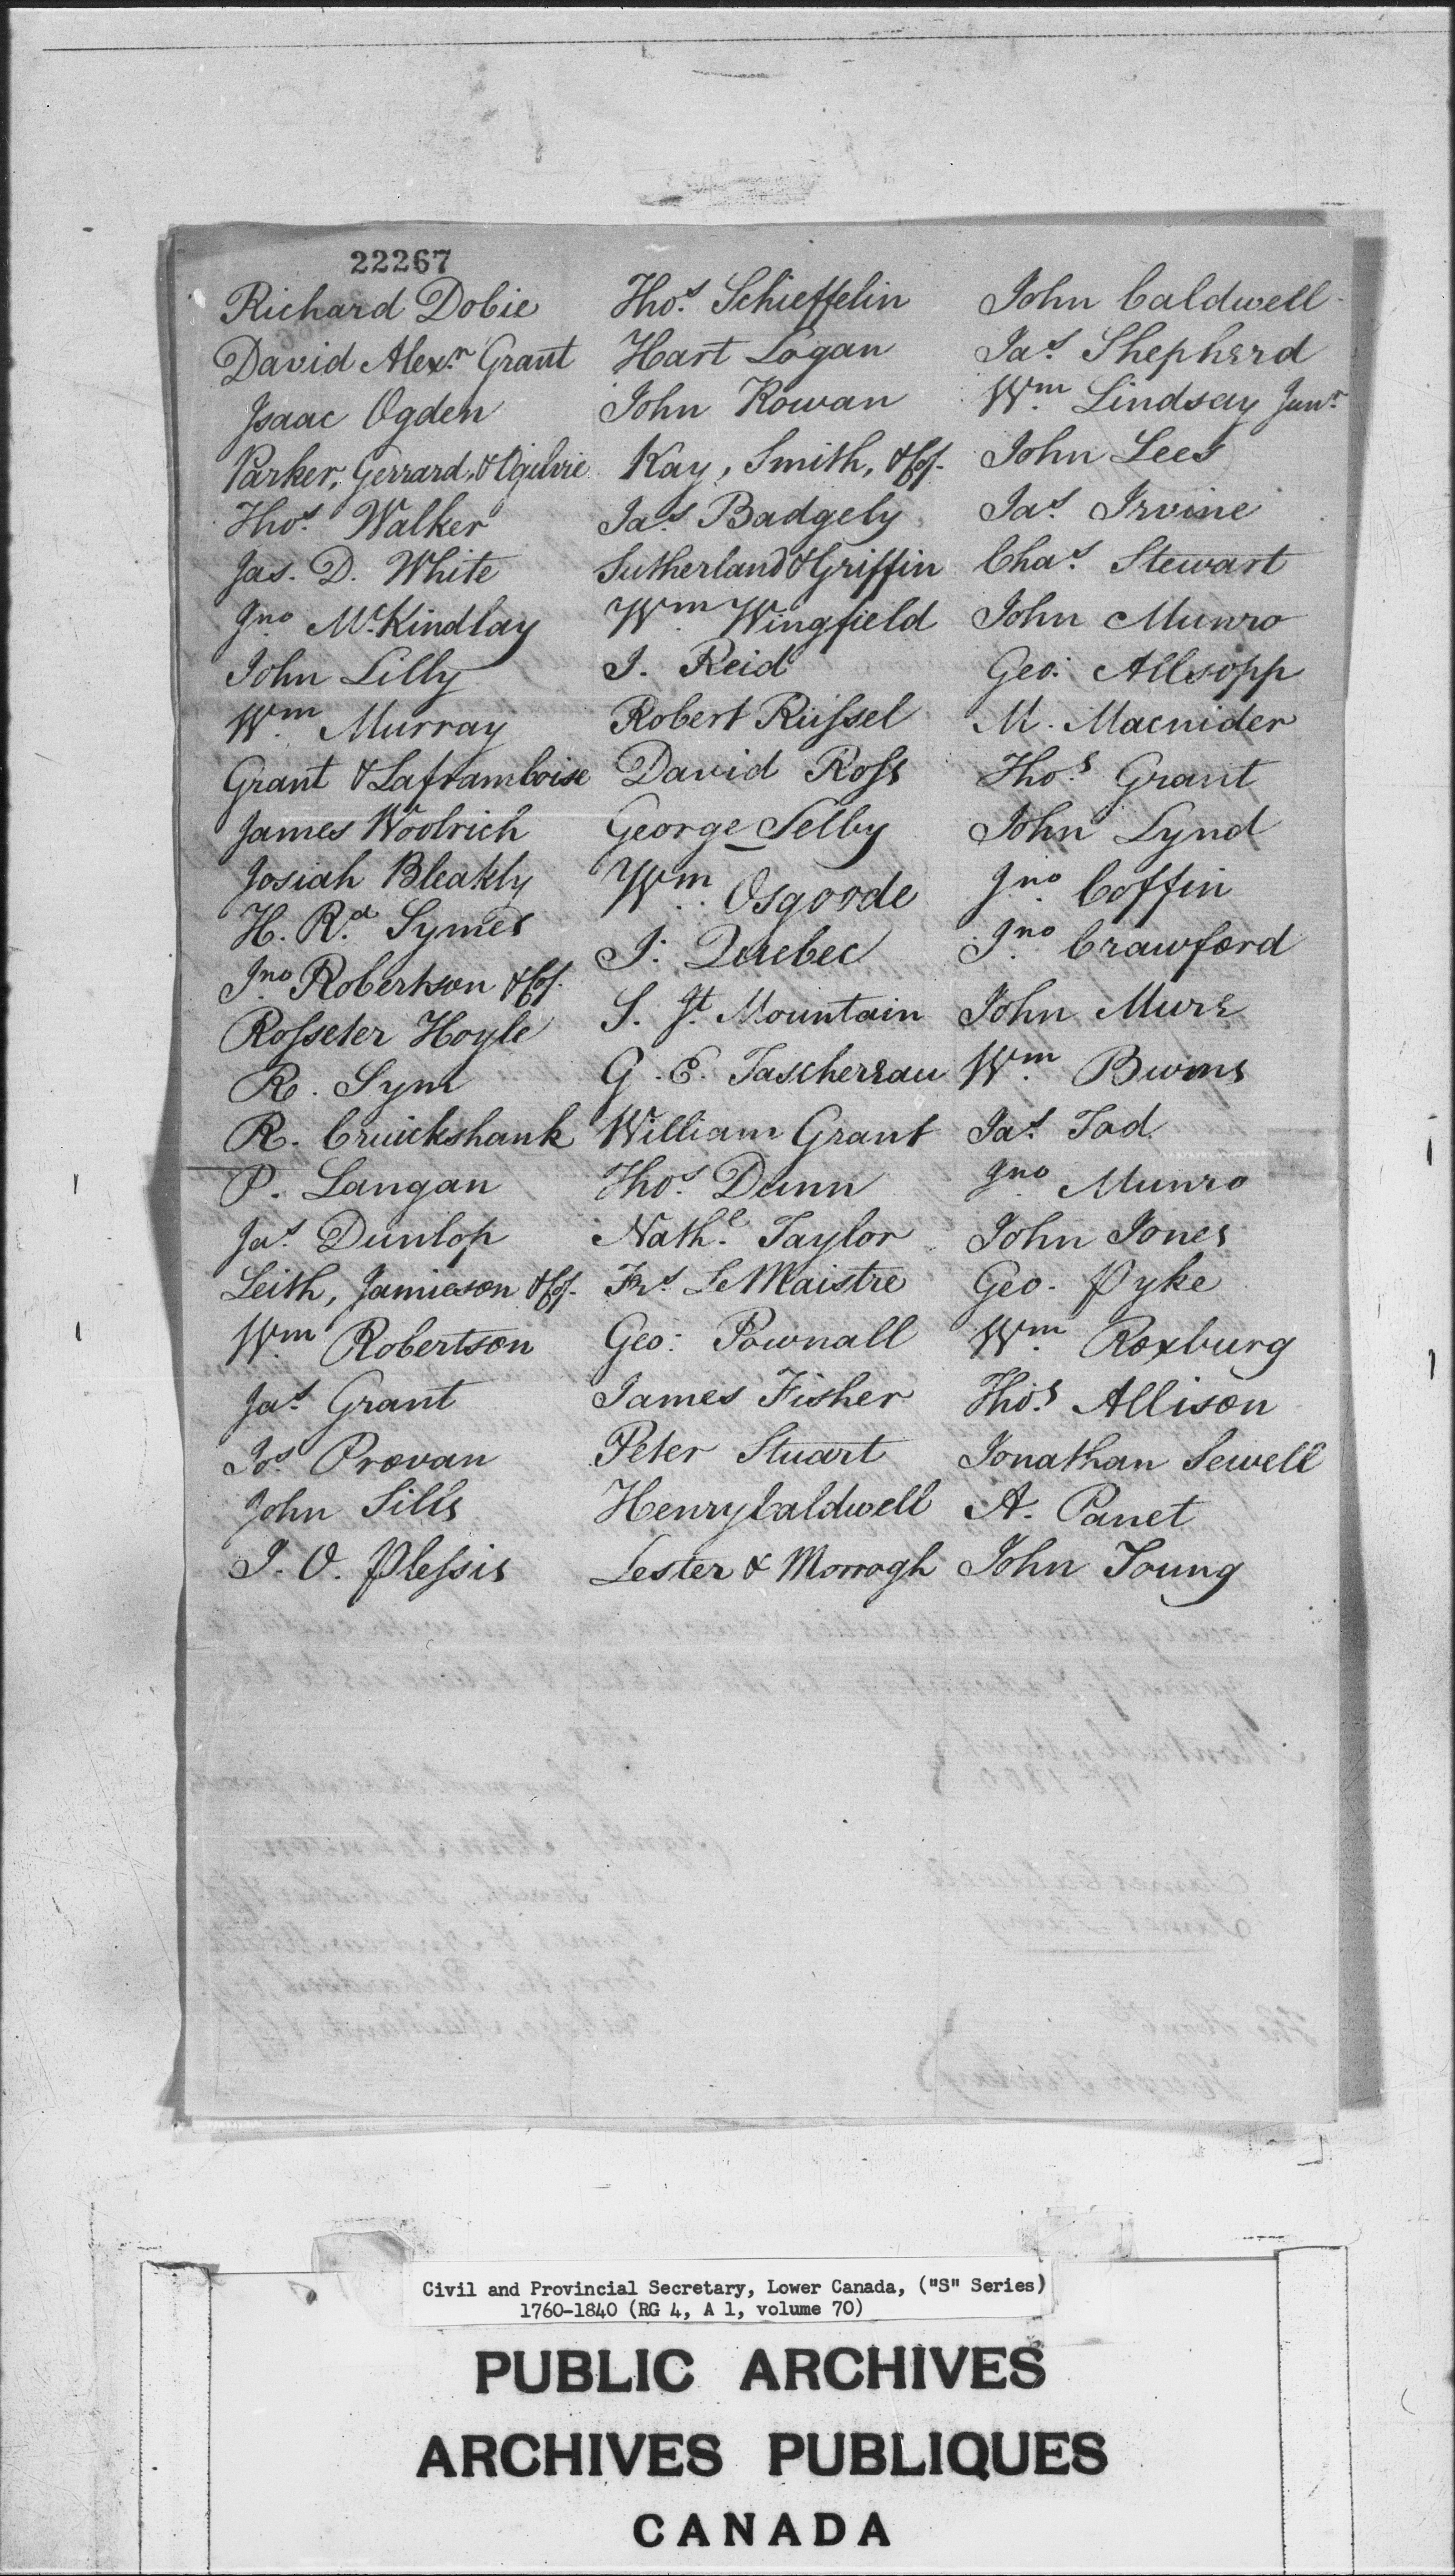 22267
Richard Dobie
David Alexr. Grant
Isaac Ogden
Parker, Gerrard, & Ogilvie
Thos. Walker
Jas. D. White
Jno. McKindlay
John Lilly
Wm. Murray
Grant & Laframboise
James Woolrich
Josiah Bleakly
H. Rd. Symes
Jno. Robertson & Co.
Rosseter Hoyle
R. Sym
R. Cruickshank
P. Langan
Jas. Dunlop
Leith, Jamieson & Co.
Wm. Robertson
Jas. Grant
Jos. Provan
John Sills
J. O. Plessis
Thos. Schieffelin
Hart Logan
John Rowan
Kay, Smith, & Co.
Jas. Badgely
Sutherland & Griffin
Wm. Wingfield
J. Reid
Robert Russel
David Ross
George Selby
Wm. Osgoode
J. Quebec
S. Jt. Mountain
G. E. Taschereau
William Grant
Thos. Dunn
Nathl. Taylor
Frs. Le Maistre
Geo: Pownall
James Fisher
Peter Stuart
Henry Caldwell
Lester & Morrogh
John Caldwell
Jas. Shepherd
Wm. Lindsay Junr.
John Lees
Jas. Irvine
Chas. Stewart
John Munro
Geo: Allsopp
M. Macnider
Thos. Grant
John Lynd
Jno. Coffin
Jno. Crawford
John Mure
Wm. Burns
Jas. Tod
Jno. Munro
John Jones
Geo. Pyke
Wm. Roxburg
Thos. Allison
Jonathan Sewell
A. Panet
John Young
Civil and Provincial Secretary, Lower Canada, ("S" Series)
1760-1840 (RG 4, A 1, volume 70)
PUBLIC ARCHIVES
ARCHIVES PUBLIQUES
CANADA